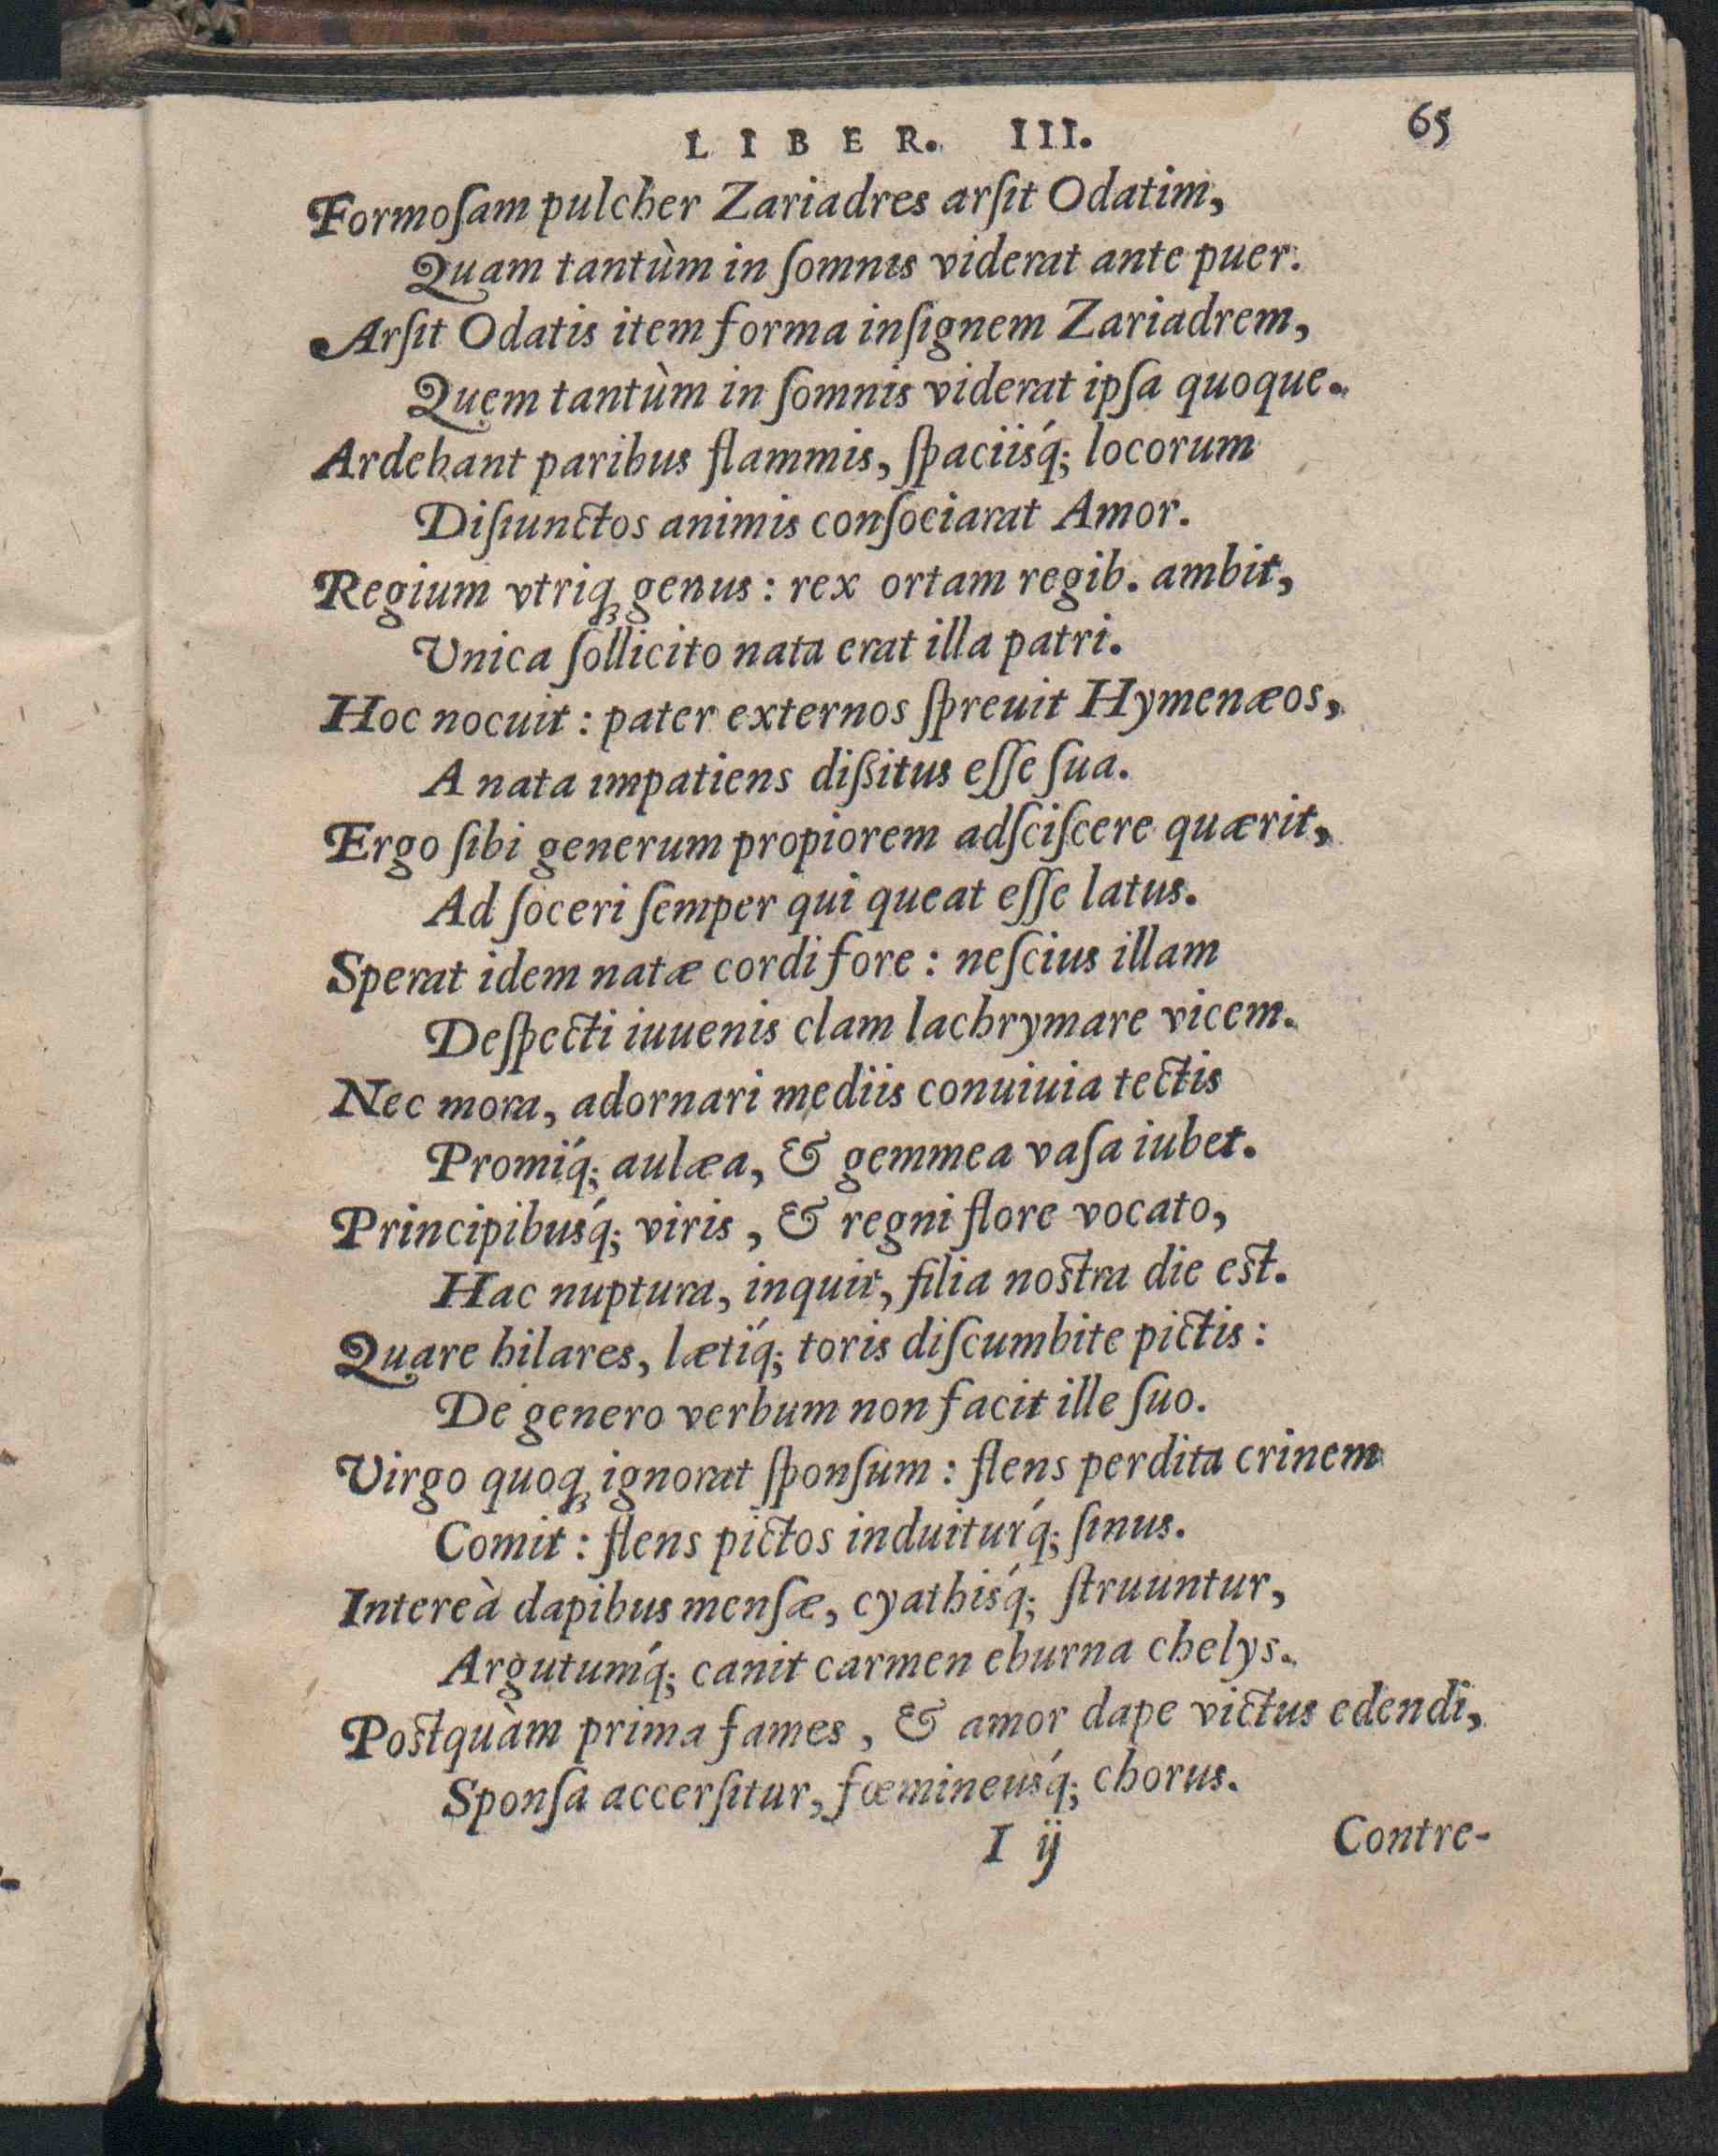 LIBER. III. 65
Formoſam pulcher Zariadres arſit Odatim,
Quam tantùm in ſomnis viderat ante puer.
Arſit Odatis item forma inſignem Zariadrem,
Quem tantùm in ſomnis viderat ipſa quoque.
Ardebant paribus flammis, ſpaciisq́; locorum
Diſiunctos animis conſociarat Amor.
Regium vtriqꝫ genus: rex ortam regib. ambit,
Unica ſollicito nata erat illa patri.
Hoc nocuit: pater externos ſpreuit Hymenæos,
A nata impatiens diſsitus eſſe ſua.
Ergo ſibi generum propiorem adſciſcere quærit,
Ad ſoceri ſemper qui queat eſſe latus.
Sperat idem natæ cordi fore: neſcius illam
Deſpecti iuuenis clam lachrymare vicem.
Nec mora, adornari mediis conuiuia tectis
Promiq́; aulæa, & gemmea vaſa iubet.
Principibusq́; viris, & regni flore vocato,
Hac nuptura, inquit, filia noſtra die eſt.
Quare hilares, lætiq́; toris diſcumbite pictis:
De genero verbum non facit ille ſuo.
Virgo quoqꝫ ignorat ſponſum: flens perdita crinem
Comit: flens pictos induiturq́; ſinus.
Intereà dapibus menſæ, cyathisq́; ſtruuntur,
Argutumq́; canit carmen eburna chelys.
Poſtquàm prima fames, & amor dape victus edendi,
Sponſa accerſitur, fœmineusq́; chorus.
I ij Contre-